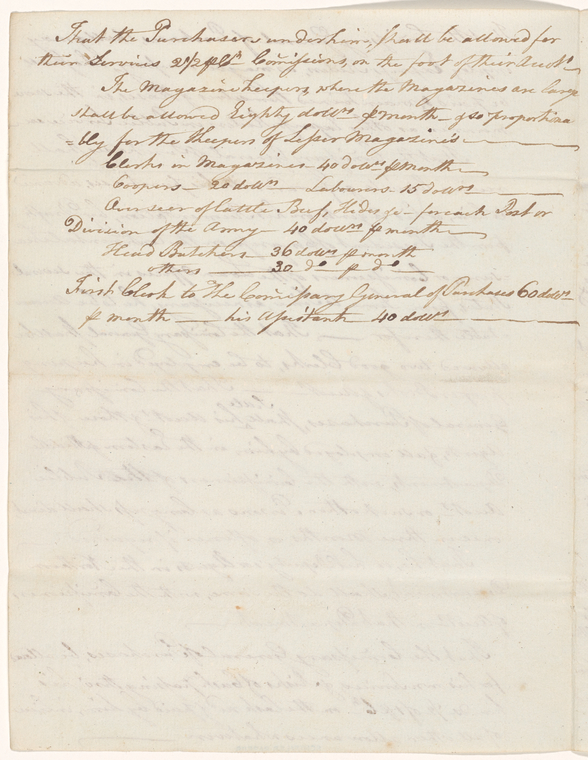 That the Purchasers under him, shall be allowed for
their Services 2 1/2 ⅌ Ct Comissions, on the foot of their Accots
The Magazine Keepers, where the Magazines are large
shall be allowed Eighty dollrs ⅌ month — & so proportiona
=bly for the Keepers of Lesser Magazines
Clerks in Magazines 40 dollrs ⅌ month
Coopers — 20 dollrs — Labourers 15 dollrs
Overseer of Cattle Beef, Hides &c — for each Post or
Division of the Army — 40 dollrs ⅌ month
Head Butchers — 36 dollrs ⅌ month
others — 30 do ⅌ do
First Clerk to The Comissary General of Purchases 60 dollrs
⅌ month — his Assistant — 40 dollrs